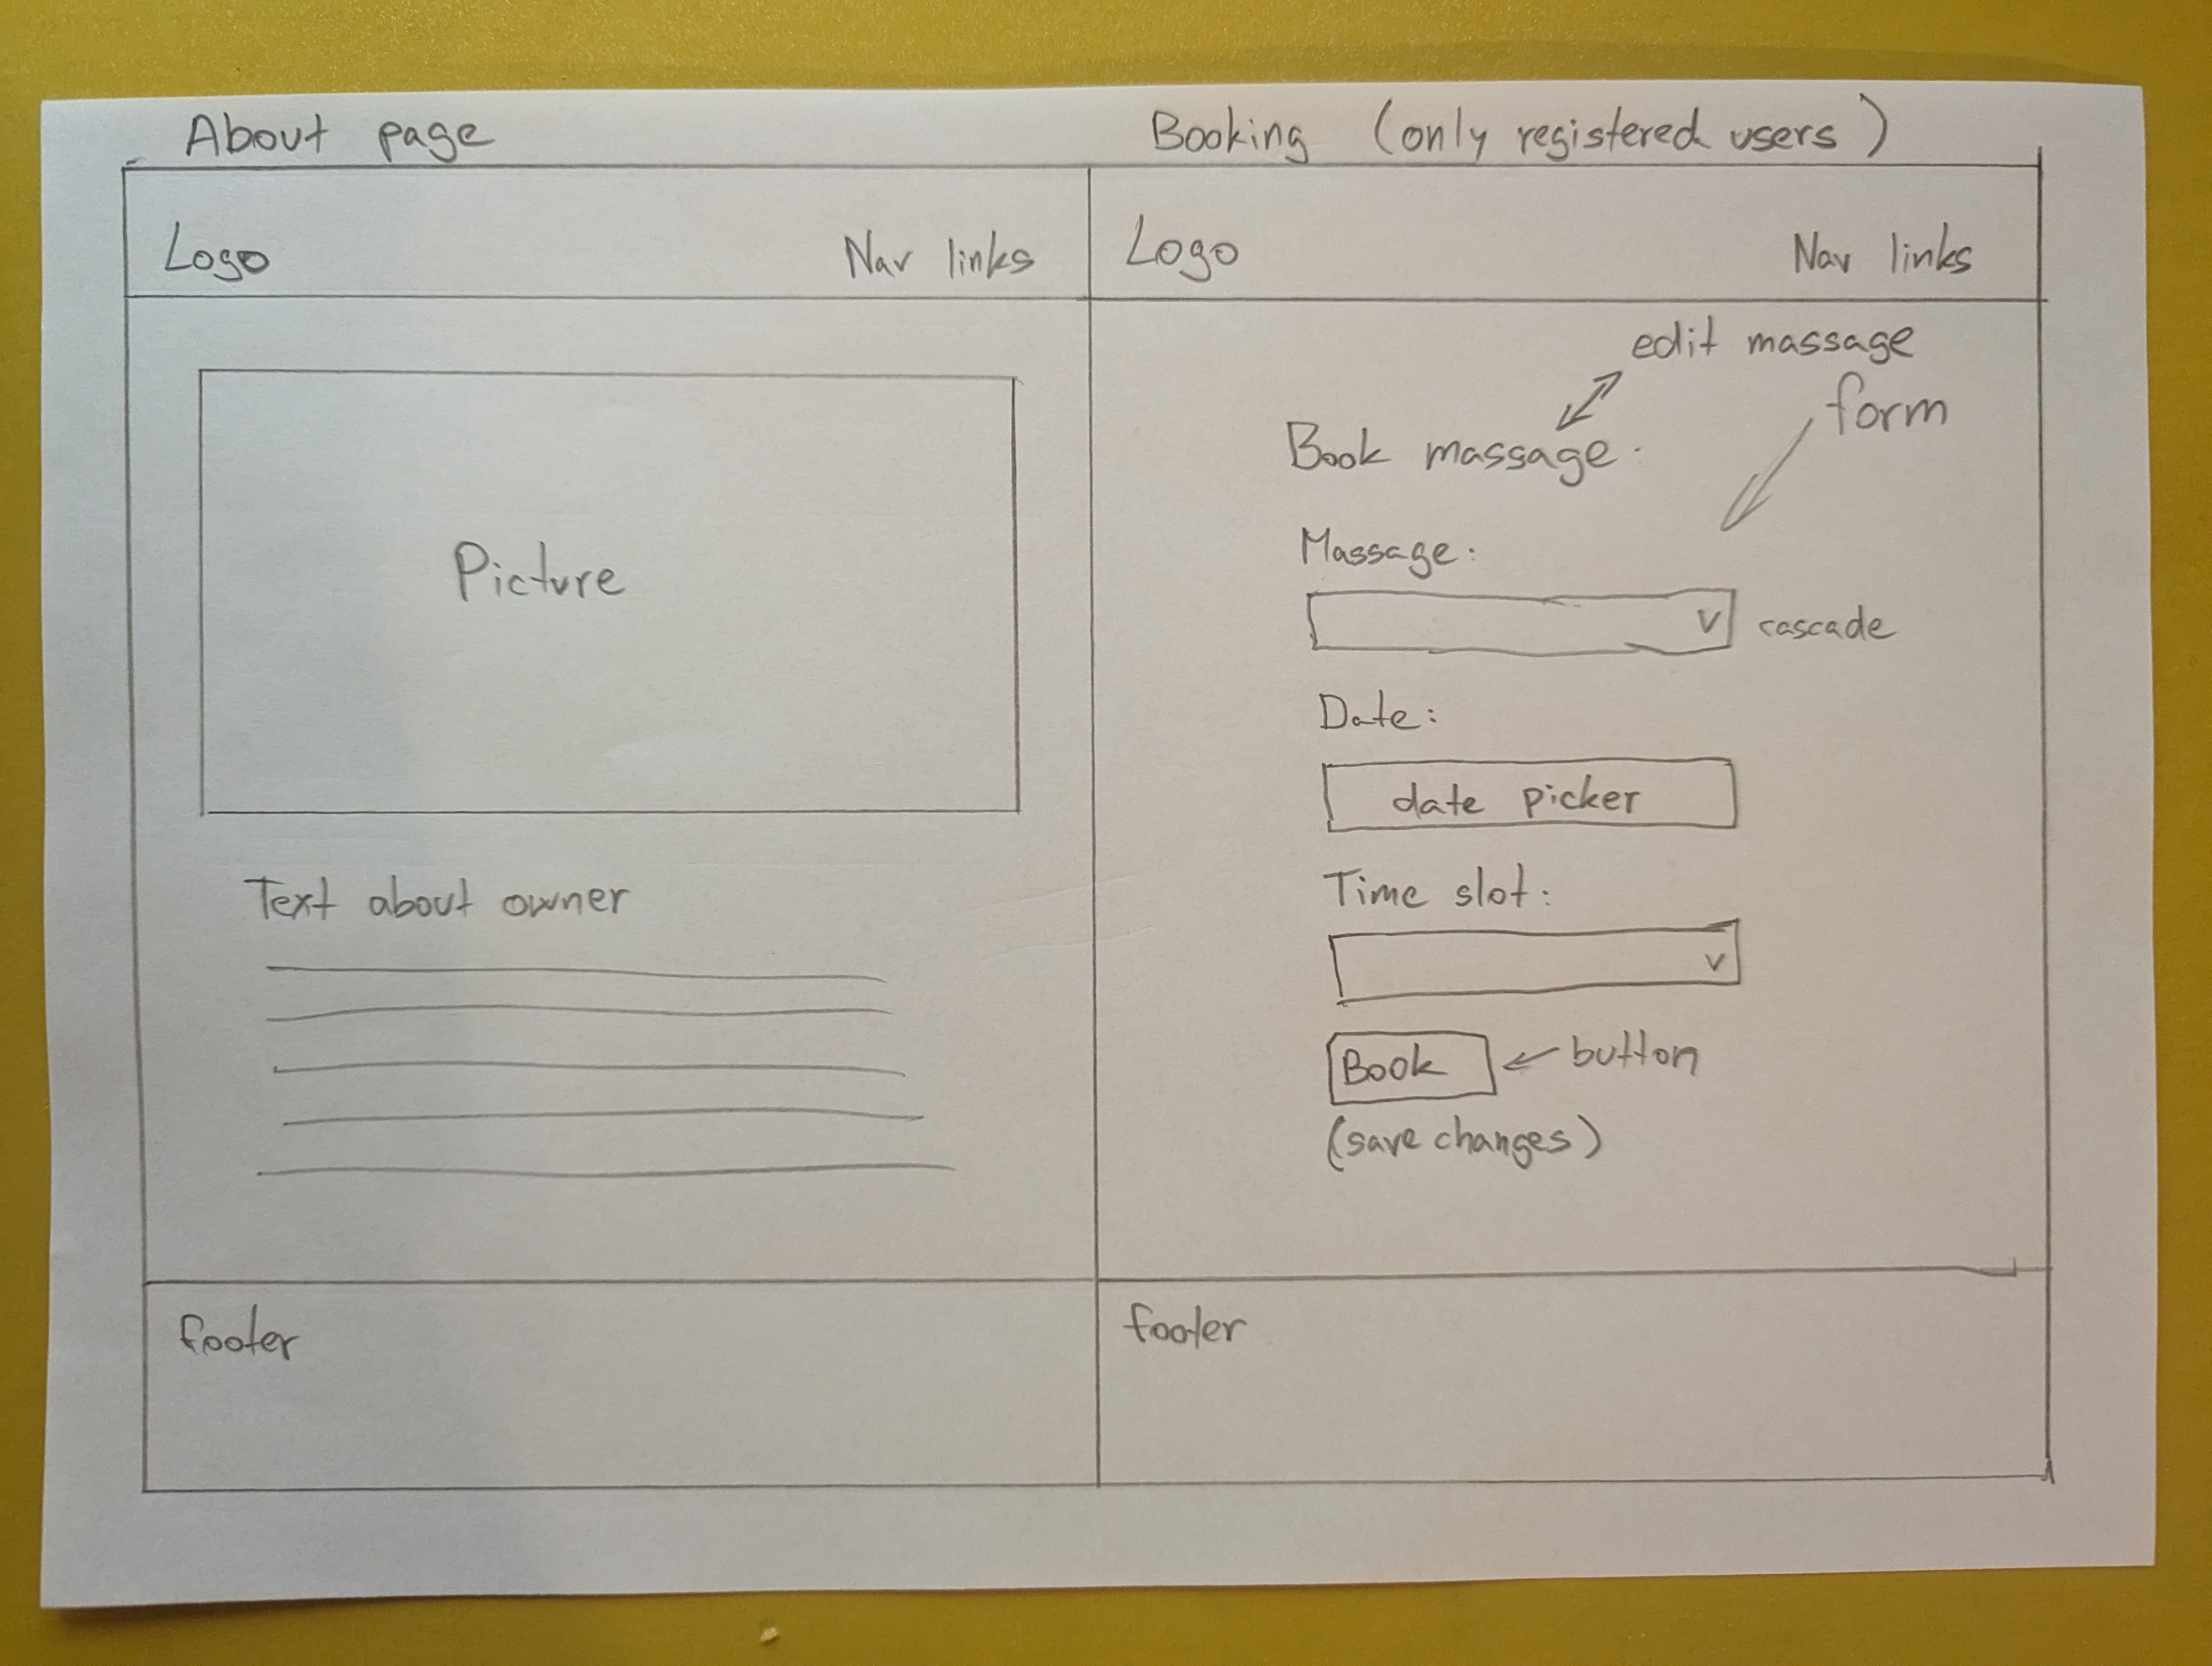 About page
Logo
Nav links
Picture
Text about owner
footer
Booking (only registered users)
Logo
Nav links
edit massage
form
Book massage:
Massage:
v cascade
Date:
date picker
Time slot:
v
Book
button
(save changes)
footer